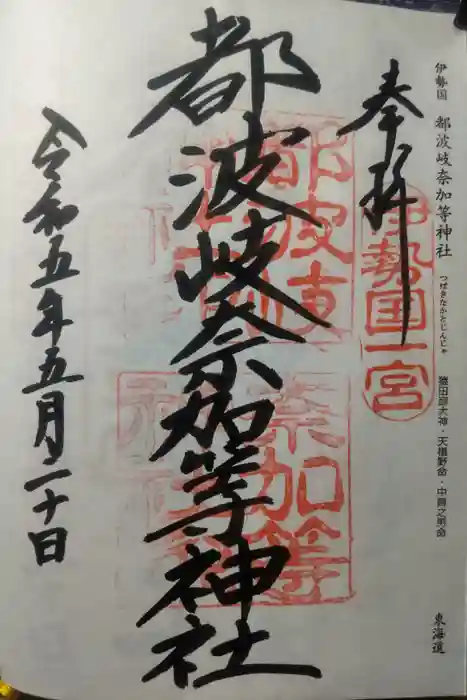 伊勢国 都波岐奈加等神社 つばきなかとじんじゃ 猿田彦大神・天椹野命・中筒之男命 東海道
奉拝
伊勢国一宮
都波岐奈加等神社
令和五年五月二十日